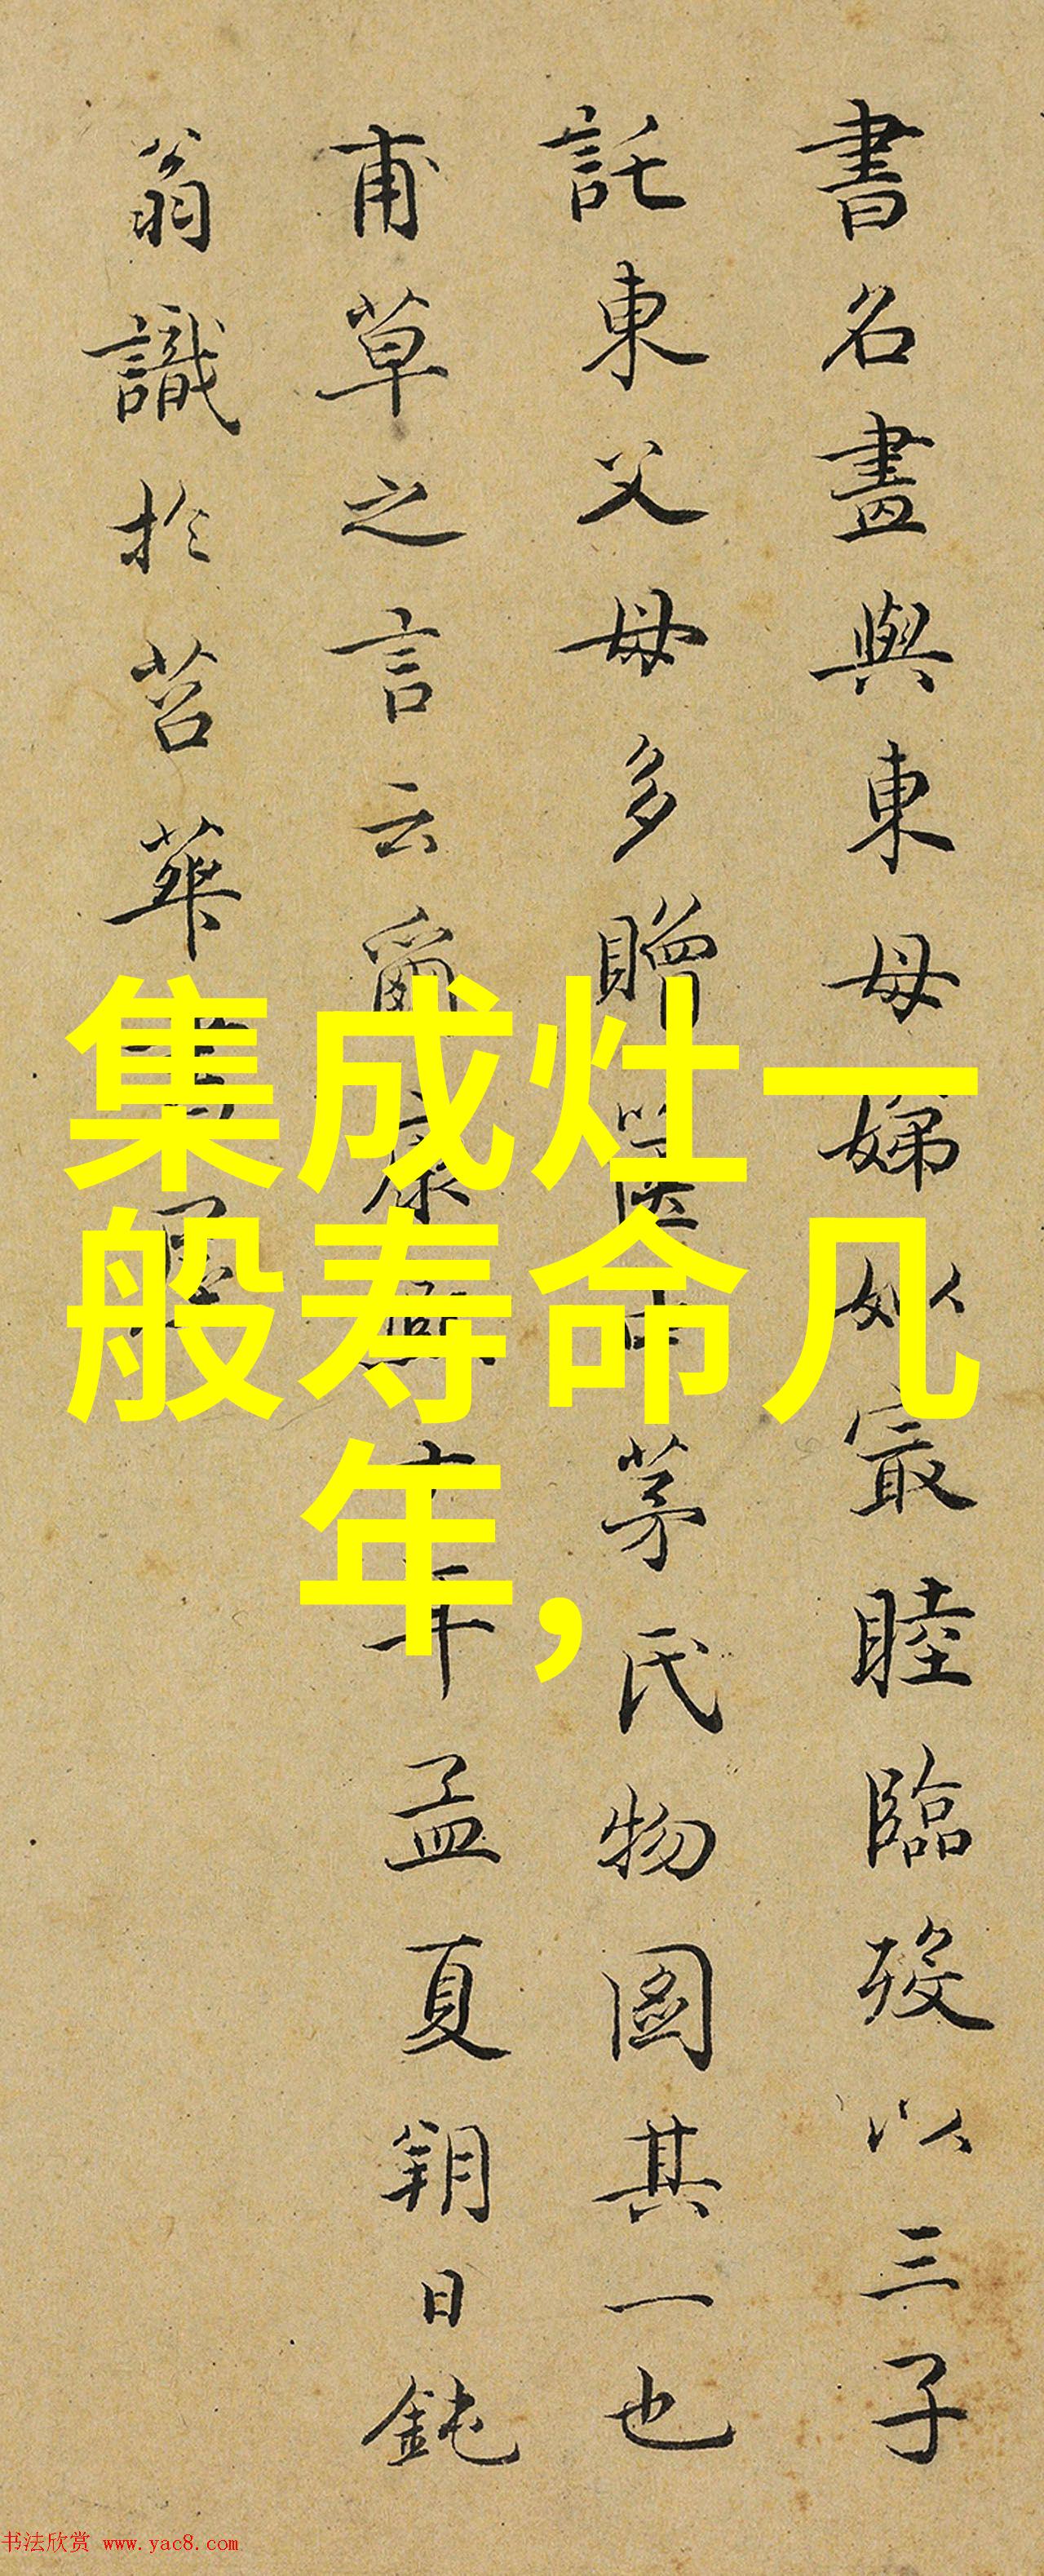 書名畫與東母娣姒最睦臨歿以三子
託東父母多贈醫中茅氏物圖其一也
甫草之言云爾康年孟夏朔日鈍
翁識於苕華
集成灶一
般寿命几
年,
书法欣赏 www.yac8.com